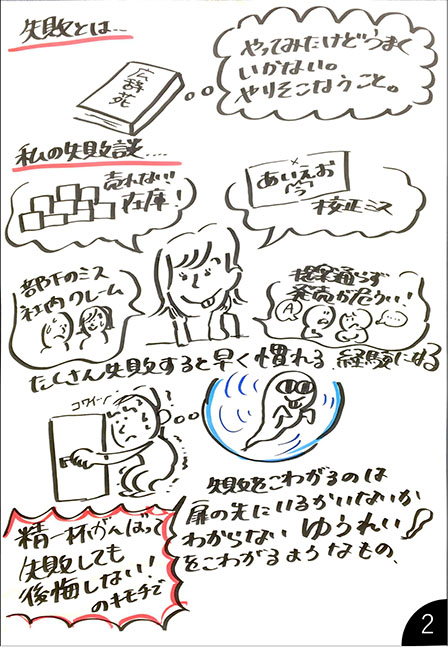 失敗とは…
広辞苑
やってみたけどうまく
いかない。
やりそこなうこと。
私の失敗談….
売れない!
在庫!
あいえお
校正ミス
部下のミス
社内クレーム
提案通らず
発売が危うい!
A
たくさん失敗すると早く慣れる。経験になる
コワイ〜
失敗をこわがるのは
扉の先にいるかいないか
わからない ゆうれい
をこわがるようなもの、
精一杯がんばって
失敗しても
後悔しない!
のキモチで
2